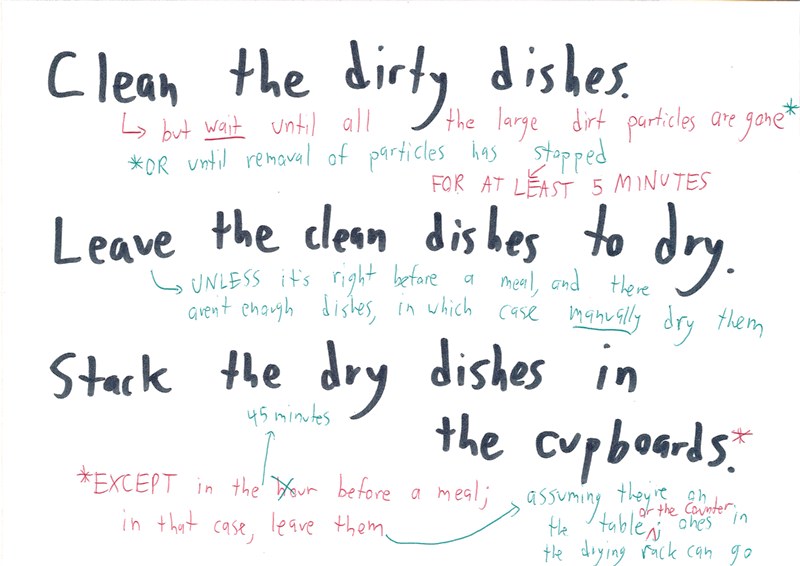 Clean the dirty dishes.
↳ but wait until all the large dirt particles are gone*
*OR until removal of particles has stopped
FOR AT LEAST 5 MINUTES
Leave the clean dishes to dry.
↳ UNLESS it's right before a meal, and there
aren't enough dishes, in which case manually dry them
Stack the dry dishes in
the cupboards.*
45 minutes
*EXCEPT in the hour before a meal;
in that case, leave them
assuming they're on
or the counter
the table; ones in
the drying rack can go